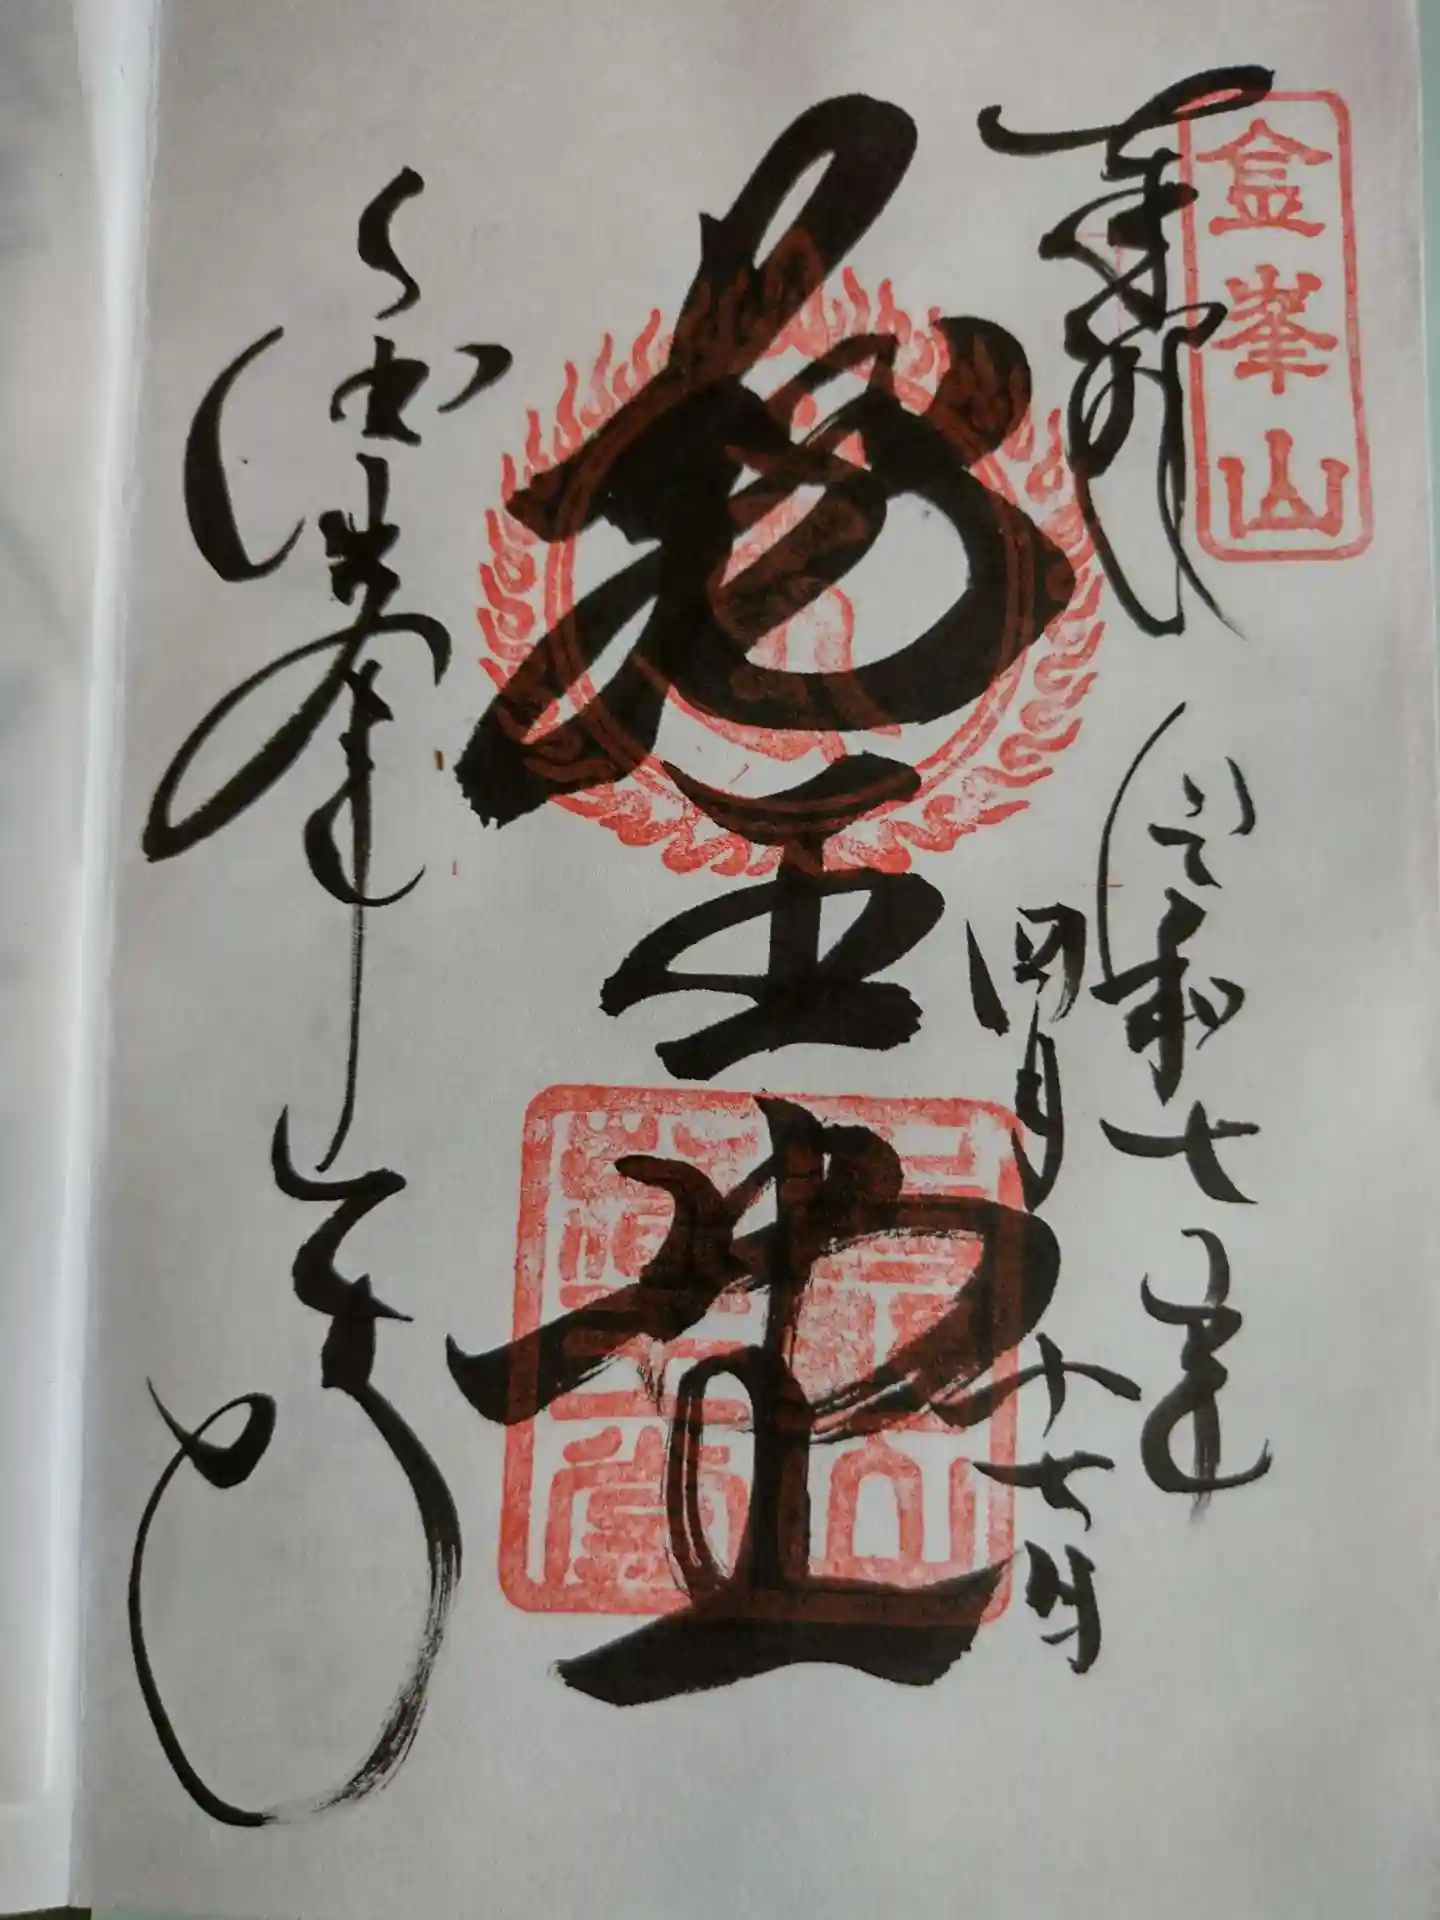 金峯山
奉拝
令和七年
四月十七日
蔵王堂
金峯山寺